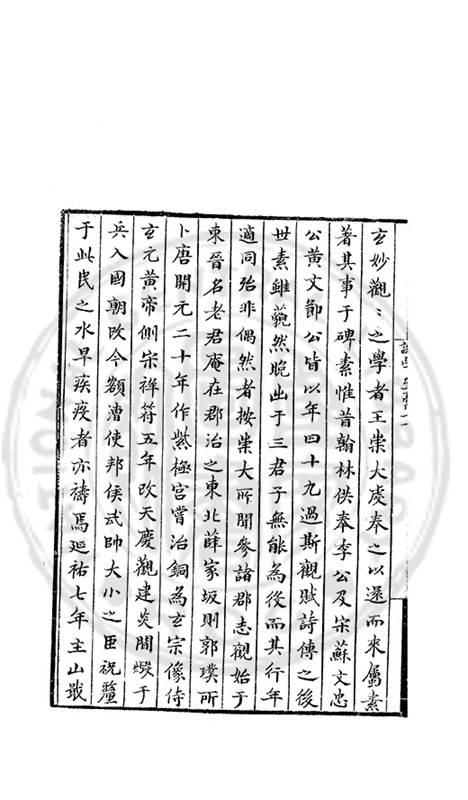 玄妙觀〻之學者王崇大虔奉之以還而来屬素
著其事于碑素惟昔翰林供奉李公及宋蘇文忠
公黄文節公皆以年四十九過斯觀賦詩傳之後
世素雖藐然晚出于三君子無能為後而其行年
適同殆非偶然者按崇大所聞參諸郡志觀始于
東晉名老君庵在郡治之東北薛家坂則郭璞所
卜唐開元二十年作紫極宫嘗治銅為玄宗像侍
玄元黄帝側宋祥符五年改天慶觀建炎間燬于
兵入國朝改今額漕使邦侯武帥大小之臣祝釐
于此民之水旱疾疫者亦禱焉延祐七年主山戢